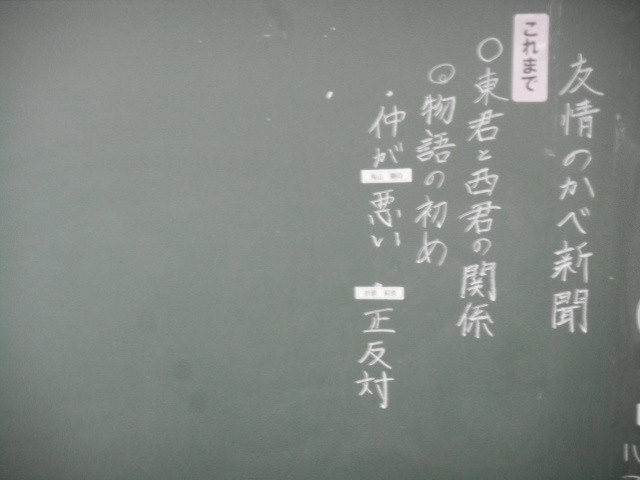 友情のかべ新聞
これまで
○東君と西君の関係
◎物語の初め
・仲が悪い ・正反対